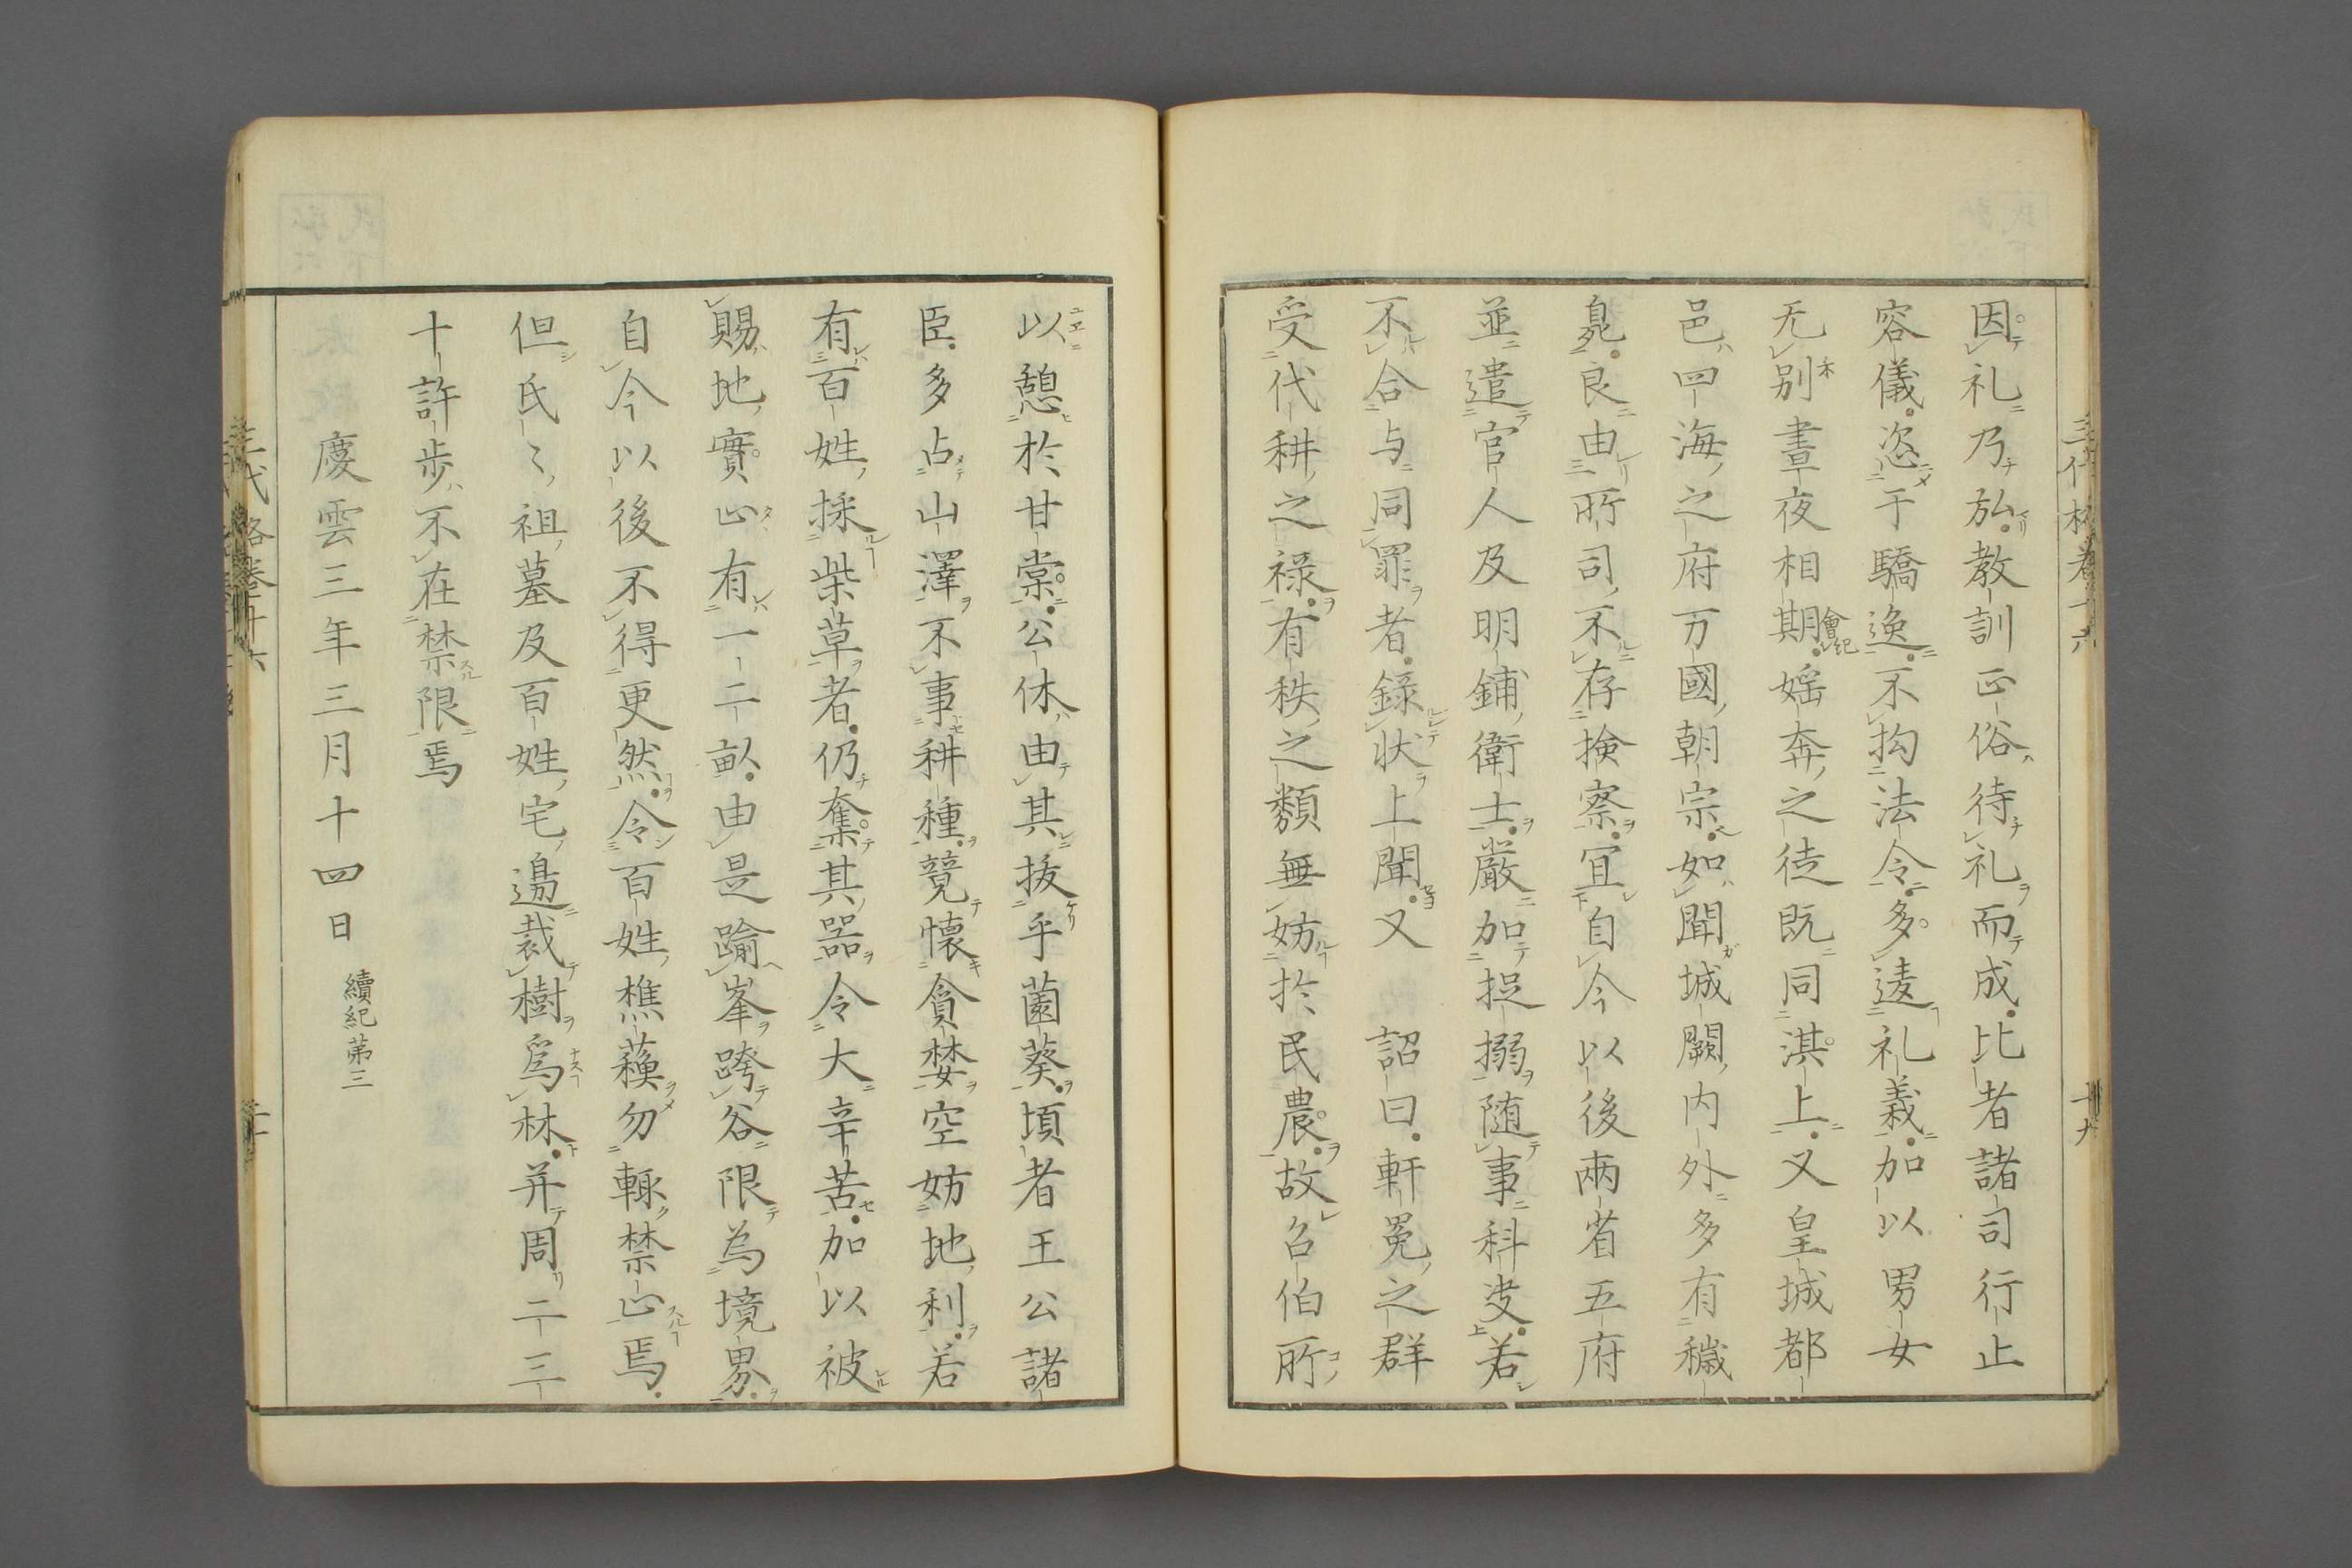 因礼乃弘教訓正俗待礼而成比者諸司行止
容儀恣于驕逸不拘法令多逺礼義加以男女
无別晝夜相期會紀婬奔之徒既同淇上又皇城都
邑四海之府万國朝宗如聞城闕内外多有穢
臭良由所司不存撿察冝自今以後兩省五府
並遣官人及明鋪衛士嚴加捉搦随事科决若
不合与同罪者録状上聞又　詔曰軒冕之群
受代耕之禄有秩之類無妨扵民農故召伯所
以憩扵甘棠公休由其拔乎薗葵頃者王公諸
臣多占山澤不事耕種競懐貪婪空妨地利若
有百姓採柴草者仍奪其器令大辛苦加以被
賜地實止有一二畝由是踰峯跨谷限為境界
自今以後不得更然令百姓樵蘓勿輙禁止焉
但氏〻祖墓及百姓宅邊裁樹爲林并周二三
十許歩不在禁限焉
慶雲三年三月十四日　續紀第三